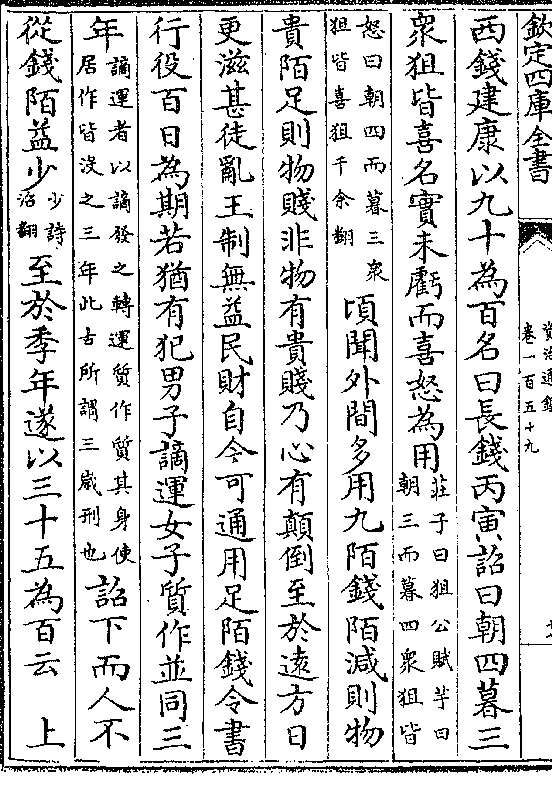 欽定四庫全書
資治通鑑
卷一百五十九
西錢建康以九十為百名曰長錢丙寅詔曰朝四暮三
衆狙皆喜名實未虧而喜怒為用莊子曰狙公賦芧曰朝三而暮四衆狙皆
怒曰朝四而暮三衆狙皆喜狙千余翻頃聞外間多用九陌錢陌減則物
貴陌足則物賤非物有貴賤乃心有顛倒至於遠方日
更滋甚徒亂王制無益民財自今可通用足陌錢令書
行後百日為期若猶有犯男子謫運女子質作並同三
年謫運者以謫發之轉運質作質其身使居作皆沒之三年此古所謂三歲刑也詔下而人不
從錢陌益少少詩沼翻至於季年遂以三十五為百云　上